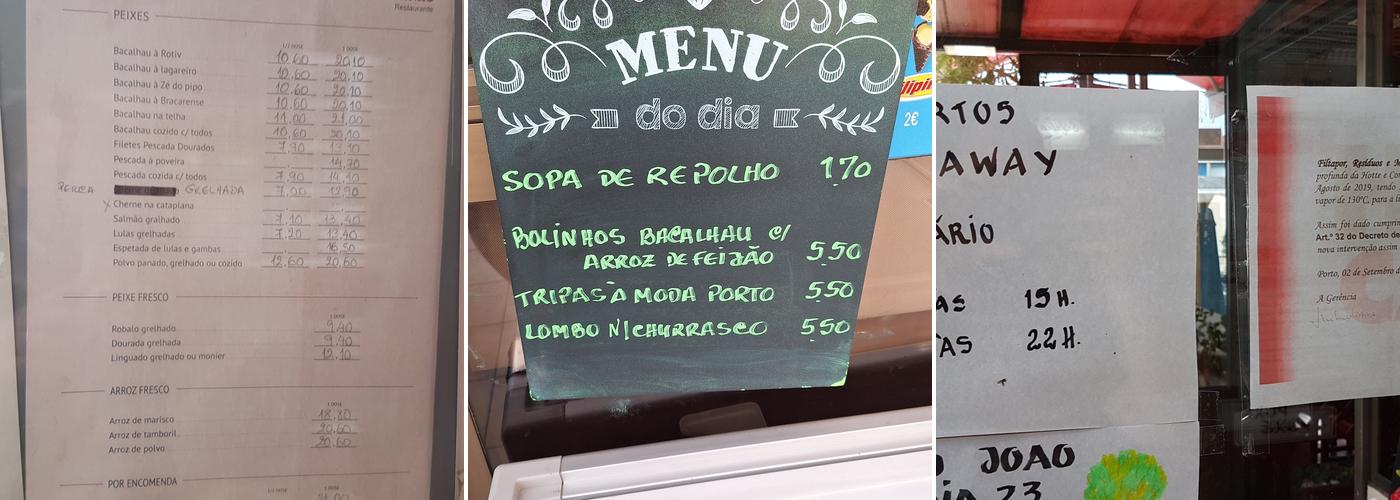 Restaurante
PEIXES
1/2 DOSE 1 DOSE
Bacalhau à Rotiv 10,60 20,10
Bacalhau à lagareiro 10,60 20,10
Bacalhau à Zé do pipo 10,60 20,10
Bacalhau à Bracarense 10,60 20,10
Bacalhau na telha 11,00 21,00
Bacalhau cozido c/ todos 10,60 20,10
Filetes Pescada Dourados 7,90
Pescada à poveira 14,70
Pescada cozida c/ todos 7,90
PERCA GRELHADA 7,00 12,90
x Cherne na cataplana
Salmão gralhado 7,10 13,40
Lulas grelhadas 7,20 13,40
Espetada de lulas e gambas 16,50
Polvo panado, grelhado ou cozido 12,60 20,60
PEIXE FRESCO
1 DOSE
Robalo grelhado 9,90
Dourada grelhada 9,90
Linguado grelhado ou monier 12,10
ARROZ FRESCO
1 DOSE
Arroz de marisco 18,80
Arroz de tamboril 20,60
Arroz de polvo 20,60
POR ENCOMENDA
1/2 DOSE 1 DOSE
MENU
do dia
SOPA DE REPOLHO 1.70
BOLINHOS BACALHAU C/
ARROZ DE FEIJÃO 5.50
TRIPAS À MODA PORTO 5.50
LOMBO N/CHURRASCO 5.50
2€
RTOS
AWAY
ÁRIO
AS 15 H.
TAS 22 H.
JOAO
DIA 23
Filtapor, Resíduos e M
profunda da Hotte e Con
Agosto de 2019, tendo
vapor de 130ºC, para a li
Assim foi dado cumprin
Art.º 32 do Decreto de
nova intervenção assim
Porto, 02 de Setembro d
A Gerência